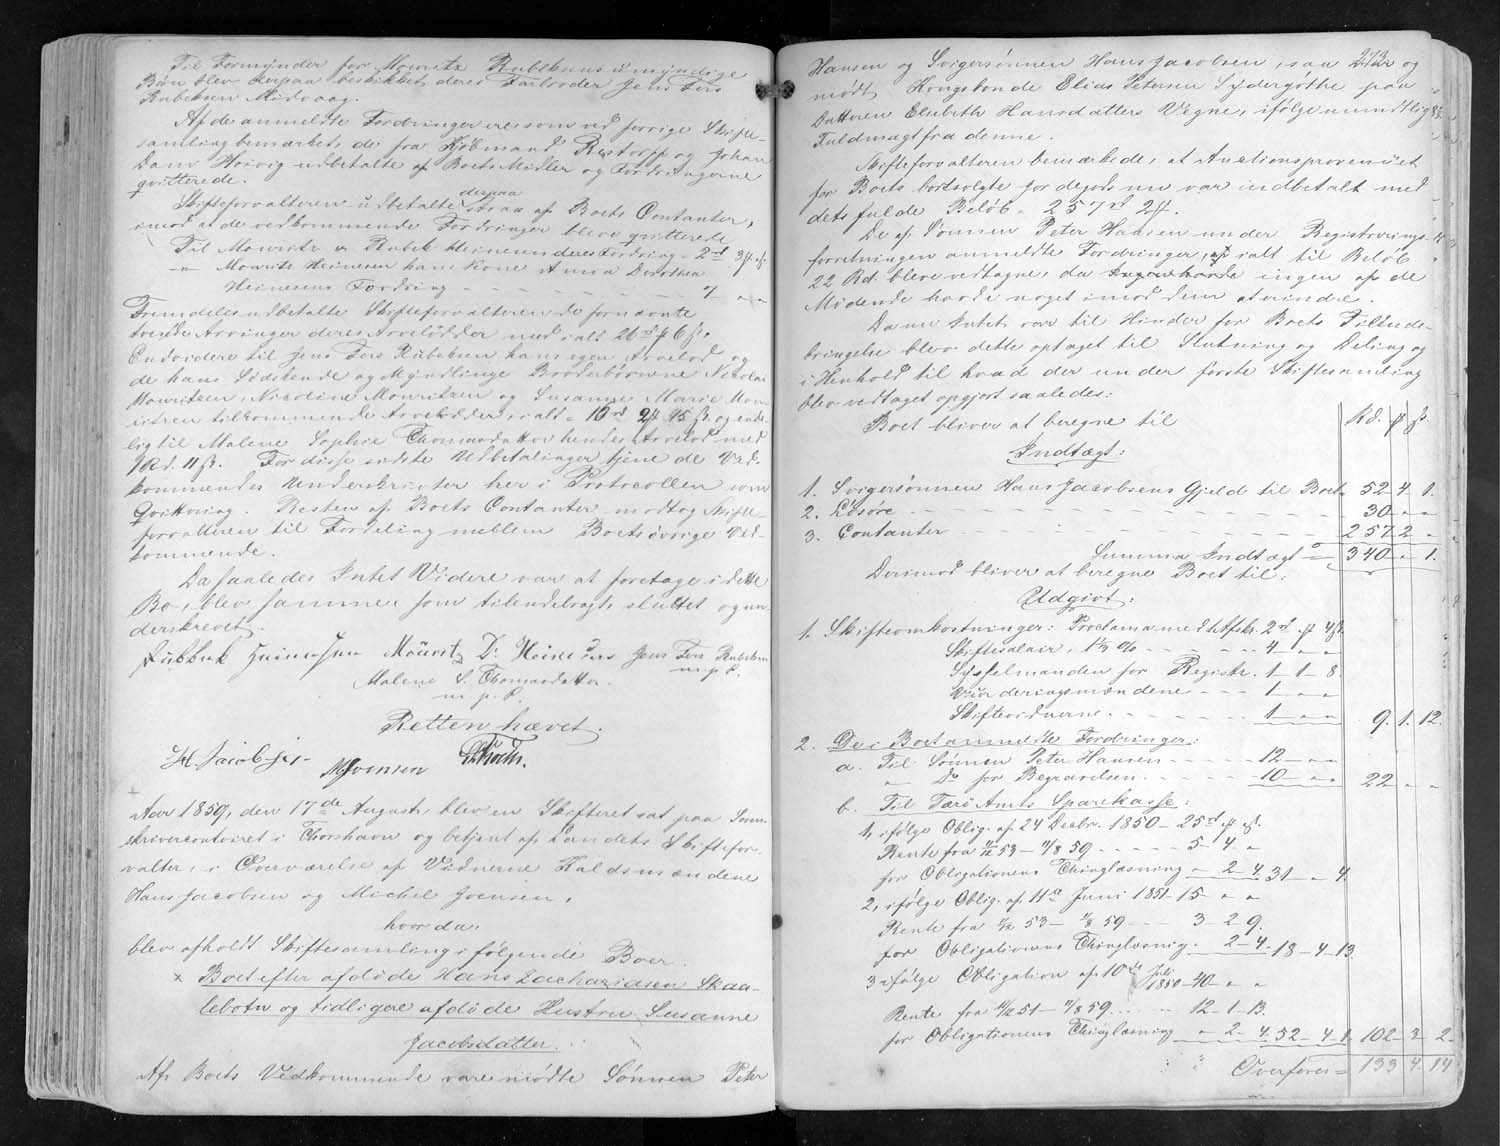 Til Formynder for Mouritz Rubeksens umyndige
Børn blev derpaa beskikket deres Farbroder Jens Fers
Rubeksen Midvaag.
Af de anmeldte Fordringer ere, som ved forrige Skifte-
samling bemærket, de fra Kjøbmand Restorff og Johan
Dan. udbetalte af Boets Midler og Fordringerne
qvitterede.
Skifteforvalteren udbetalte derpaa strax af Boets Contanter,
imod at de vedkommende Fordringer bleve qvitterede
Til Mouritz & Rubek Heinesen deres Fordring - 2 rd 3 ℳ ß.
" Mouritz Heinesen hans Kone Anna Dorothea
Heinesens Fordring - - - - - - 7 " "
Fremdeles udbetalte Skifteforvalteren de fornævnte
trende Arvinger deres Arvelodder med ialt 26 rd ℳ 6 ß.
Endvidere til Jens Fers Rubeksen hans egen Arvelod og
de hans Sødskende og Myndlinge Broderbørnene Nicolai
Mouritzen, Nicoline Mouritzen og Susanne Marie Mou-
ritzen tilkommende Arvelodder, ialt 10 rd 2 ℳ 15 ß. og ende-
lig til Malene Sophie Thomasdatter hendes Arvelod med
1 Rd. 11 ß. For disse sidste Udbetalinger tjene de Ved-
kommendes Underskrivter her i Protocollen som
Qvittering. Resten af Boets Contanter modtog Skifte-
forvalteren til Fordeling mellem Boets øvrige Ved-
kommende.
Da saaledes Intet Videre var at foretage i dette
Bo, blev samme, som tilendebragt, sluttet og un-
derskrevet.
Rubbek Heinesen Mouritz Dl. Heinesen Jens Fers Rubeksen
m. p. P.
Malene S. Thomasdatter
m. p. P.
Retten hævet.
H. Jacobsen
MJoensen
Aar 1859, den 17de August, blev en Skifteret sat paa Soren-
skrivercontoiret i Thorshavn og betjent af Landets Skiftefor-
valter, i Overværelse af Vidnerne Kaldsmændene
Hans Jacobsen og Michel Joensen,
hvor da:
blev afholdt Skiftesamling i følgende Boer.
x Boet efter afdøde Hans Zachariasen Skaa-
lebotn og tidligere afdøde Hustru Susanne
Jacobsdatter.
Af Boets Vedkommende vare mødte Sønnen Peter
272
Hansen og Svigersønnen Hans Jacobsen, saa og
mødt Kongsbonde Elias Petersen Sydergøthe paa
Datteren Elisbeth Hansdatters Vegne, ifølge mundtlig
Fuldmagt fra denne.
Skifteforvalteren bemærkede, at Auctionsprovenuet
for Boets bortsolgte Jordegods nu var indbetalt med
dets fulde Beløb - 257 rd 2 ℳ.
De af Sønnen Peter Hansen under Registrerings-
forretningen anmeldte Fordringer, af ialt til Beløb
22 Rd. bleve vedtagne, da ingen af de
Mødende havde noget imod dem at erindre.
Da nu Intet var til Hinder for Boets Tilende-
bringelse blev dette optaget til Slutning og Deling og
i Henhold til hvad der under første Skiftesamling
blev vedtaget opgjort saaledes:
Boet bliver at beregne til
Rd. ℳ ß.
Indtægt:
1. Svigersønnen Hans Jacobsens Gjeld til Boet - 52 - 4 - 1.
2. Løsøre - - - - - - 30 - " "
3. Contanter - - - - - - 257 2 "
Summa Indtægt = 340 - " 1.
Derimod bliver at beregne Boet til:
Udgivt:
1. Skifteomkostninger: Proclama med Afskr. 2 rd ℳ 4 ß.
Skiftesalair, 1⅓ % - - - - 4 " "
Sysselmanden for Registr. 1 - 1 - 8.
Vurderingsmændene - - - 1 - " "
Skiftevidnerne - - - - 1 - " " 9. 1. 12.
2. De i Boet anmeldte Fordringer:
a. Til Sønnen Peter Hansen - - - 12 - " "
" Do for Begravelsen - - - 10 - " " 22 " "
b. Til Færø Amts Sparekasse:
1, ifølge Oblig. af 24 Decbr. 1850 - 25 rd ℳ ß.
Rente fra 11/12 53 - 11/8 59 - - - - 5 - 4 "
for Obligationens Thinglæsning - " 2 - 4. 31 - " 4.
2, ifølge Oblig. af 11te Juni 1851 - 15 - " "
Rente fra 11/12 53 - 11/8 59 - - - 3 - 2 - 9.
for Obligationens Thinglæsnig. - 2 - 4. 18 - 4 - 13.
3 ifølge Obligation af 10de Juli
1850 - 40 - " "
Rente fra 11/12 51 - 11/8 59 - - - - 12 - 1 - 13.
for Obligationens Thinglæsning " 2 - 4. 52 - 4 - 1. 102 - 3 - 2.
Overføres = 133 4. 14